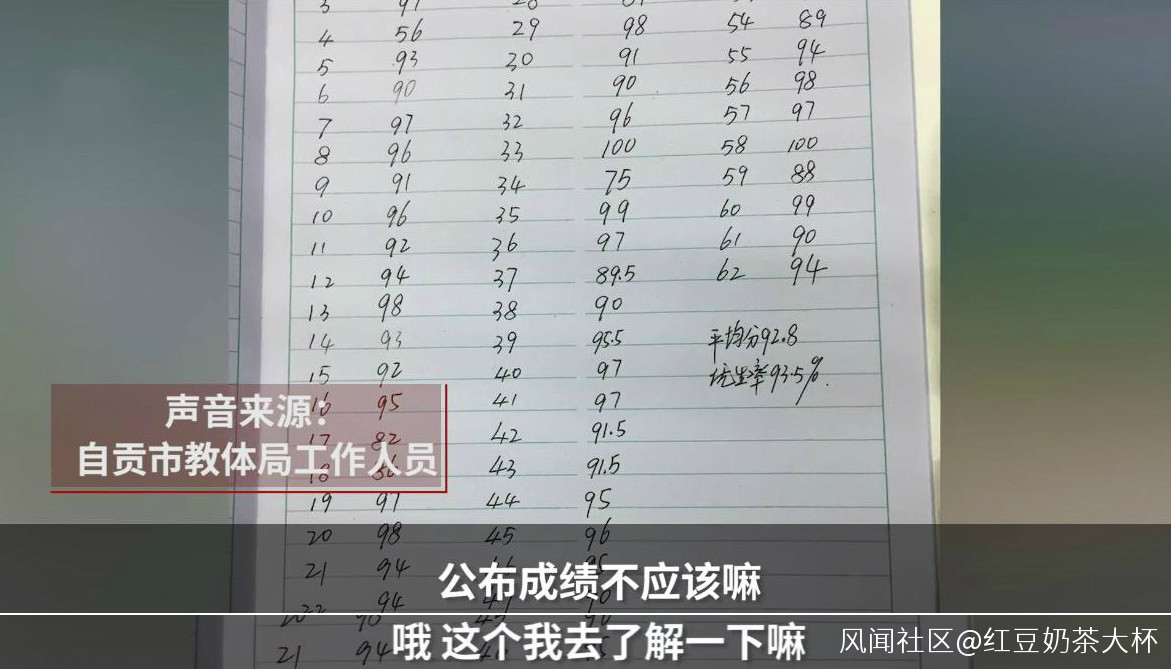 4 56 29 98 54 89
5 93 30 91 55 94
6 90 31 90 56 98
7 97 32 96 57 97
8 96 33 100 58 100
9 91 34 75 59 88
10 96 35 99 60 99
11 92 36 97 61 90
12 94 37 89.5 62 94
13 98 38 90
14 93 39 95.5 平均分92.8
15 92 40 97 优生率93.5%.
16 95 41 97
声音来源：
17 82 42 91.5
自贡市教体局工作人员
18 43 91.5
19 97 44 95
20 98 45 96
21 94
公布成绩不应该嘛
22 94
哦 这个我去了解一下嘛
风闻社区@红豆奶茶大杯
21 94